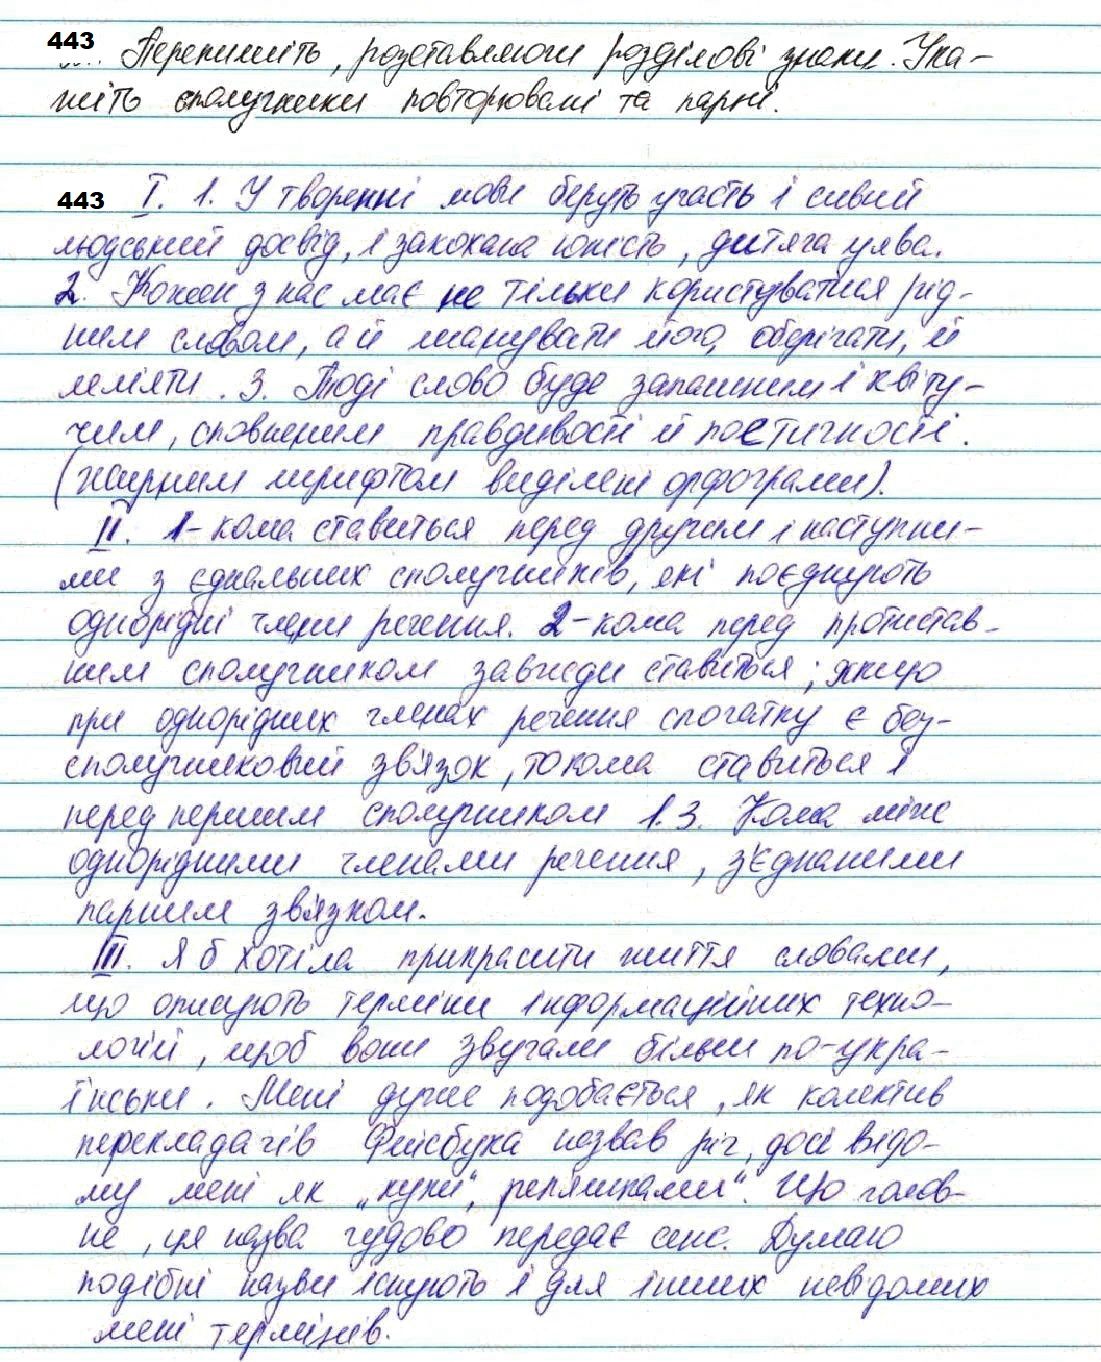 443 Перепишіть, розставляючи розділові знаки. Ука-
жіть сполучники повторювані та парні.
443 I. 1. У творенні мови беруть участь і сивий
людський досвід, і закохана юність, дитяча уява.
2. Кожен з нас має не тільки користуватися рід-
ним словом, а й шанувати його, оберігати, й
леліяти. 3. Тоді слово буде запашним і квіту-
чим, сповненим правдивості й поетичності.
(жирним шрифтом виділені орфограми).
II. 1-кома ставиться перед другим і наступни-
ми з єднальних сполучників, які поєднують
однорідні члени речення. 2-кома перед протистав-
ним сполучником завжди ставиться; якщо
при однорідних членах речення спочатку є без-
сполучниковий зв'язок, то кома ставиться і
перед першим сполучником і. 3. Кома між
однорідними членами речення, з'єднаними
парним зв'язком.
III. Я б хотіла прикрасити життя словами,
що описують терміни інформаційних техно-
логій, щоб вони звучали більш по-укра-
їнськи. Мені дуже подобається, як колектив
перекладачів Фейсбука назвав річ, досі відо-
му мені як „куки", реп'яшками". Що голов-
не, ця назва чудово передає сенс. Думаю
подібні назви існують і для інших невідомих
мені термінів.